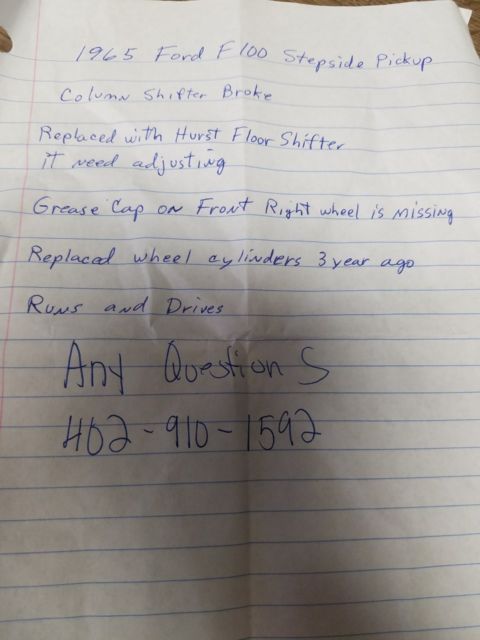 1965 Ford F100 Stepside Pickup
Column Shifter Broke
Replaced with Hurst Floor Shifter
it need adjusting
Grease Cap on Front Right wheel is missing
Replaced wheel cylinders 3 year ago
Runs and Drives
Any Question S
402-910-1592